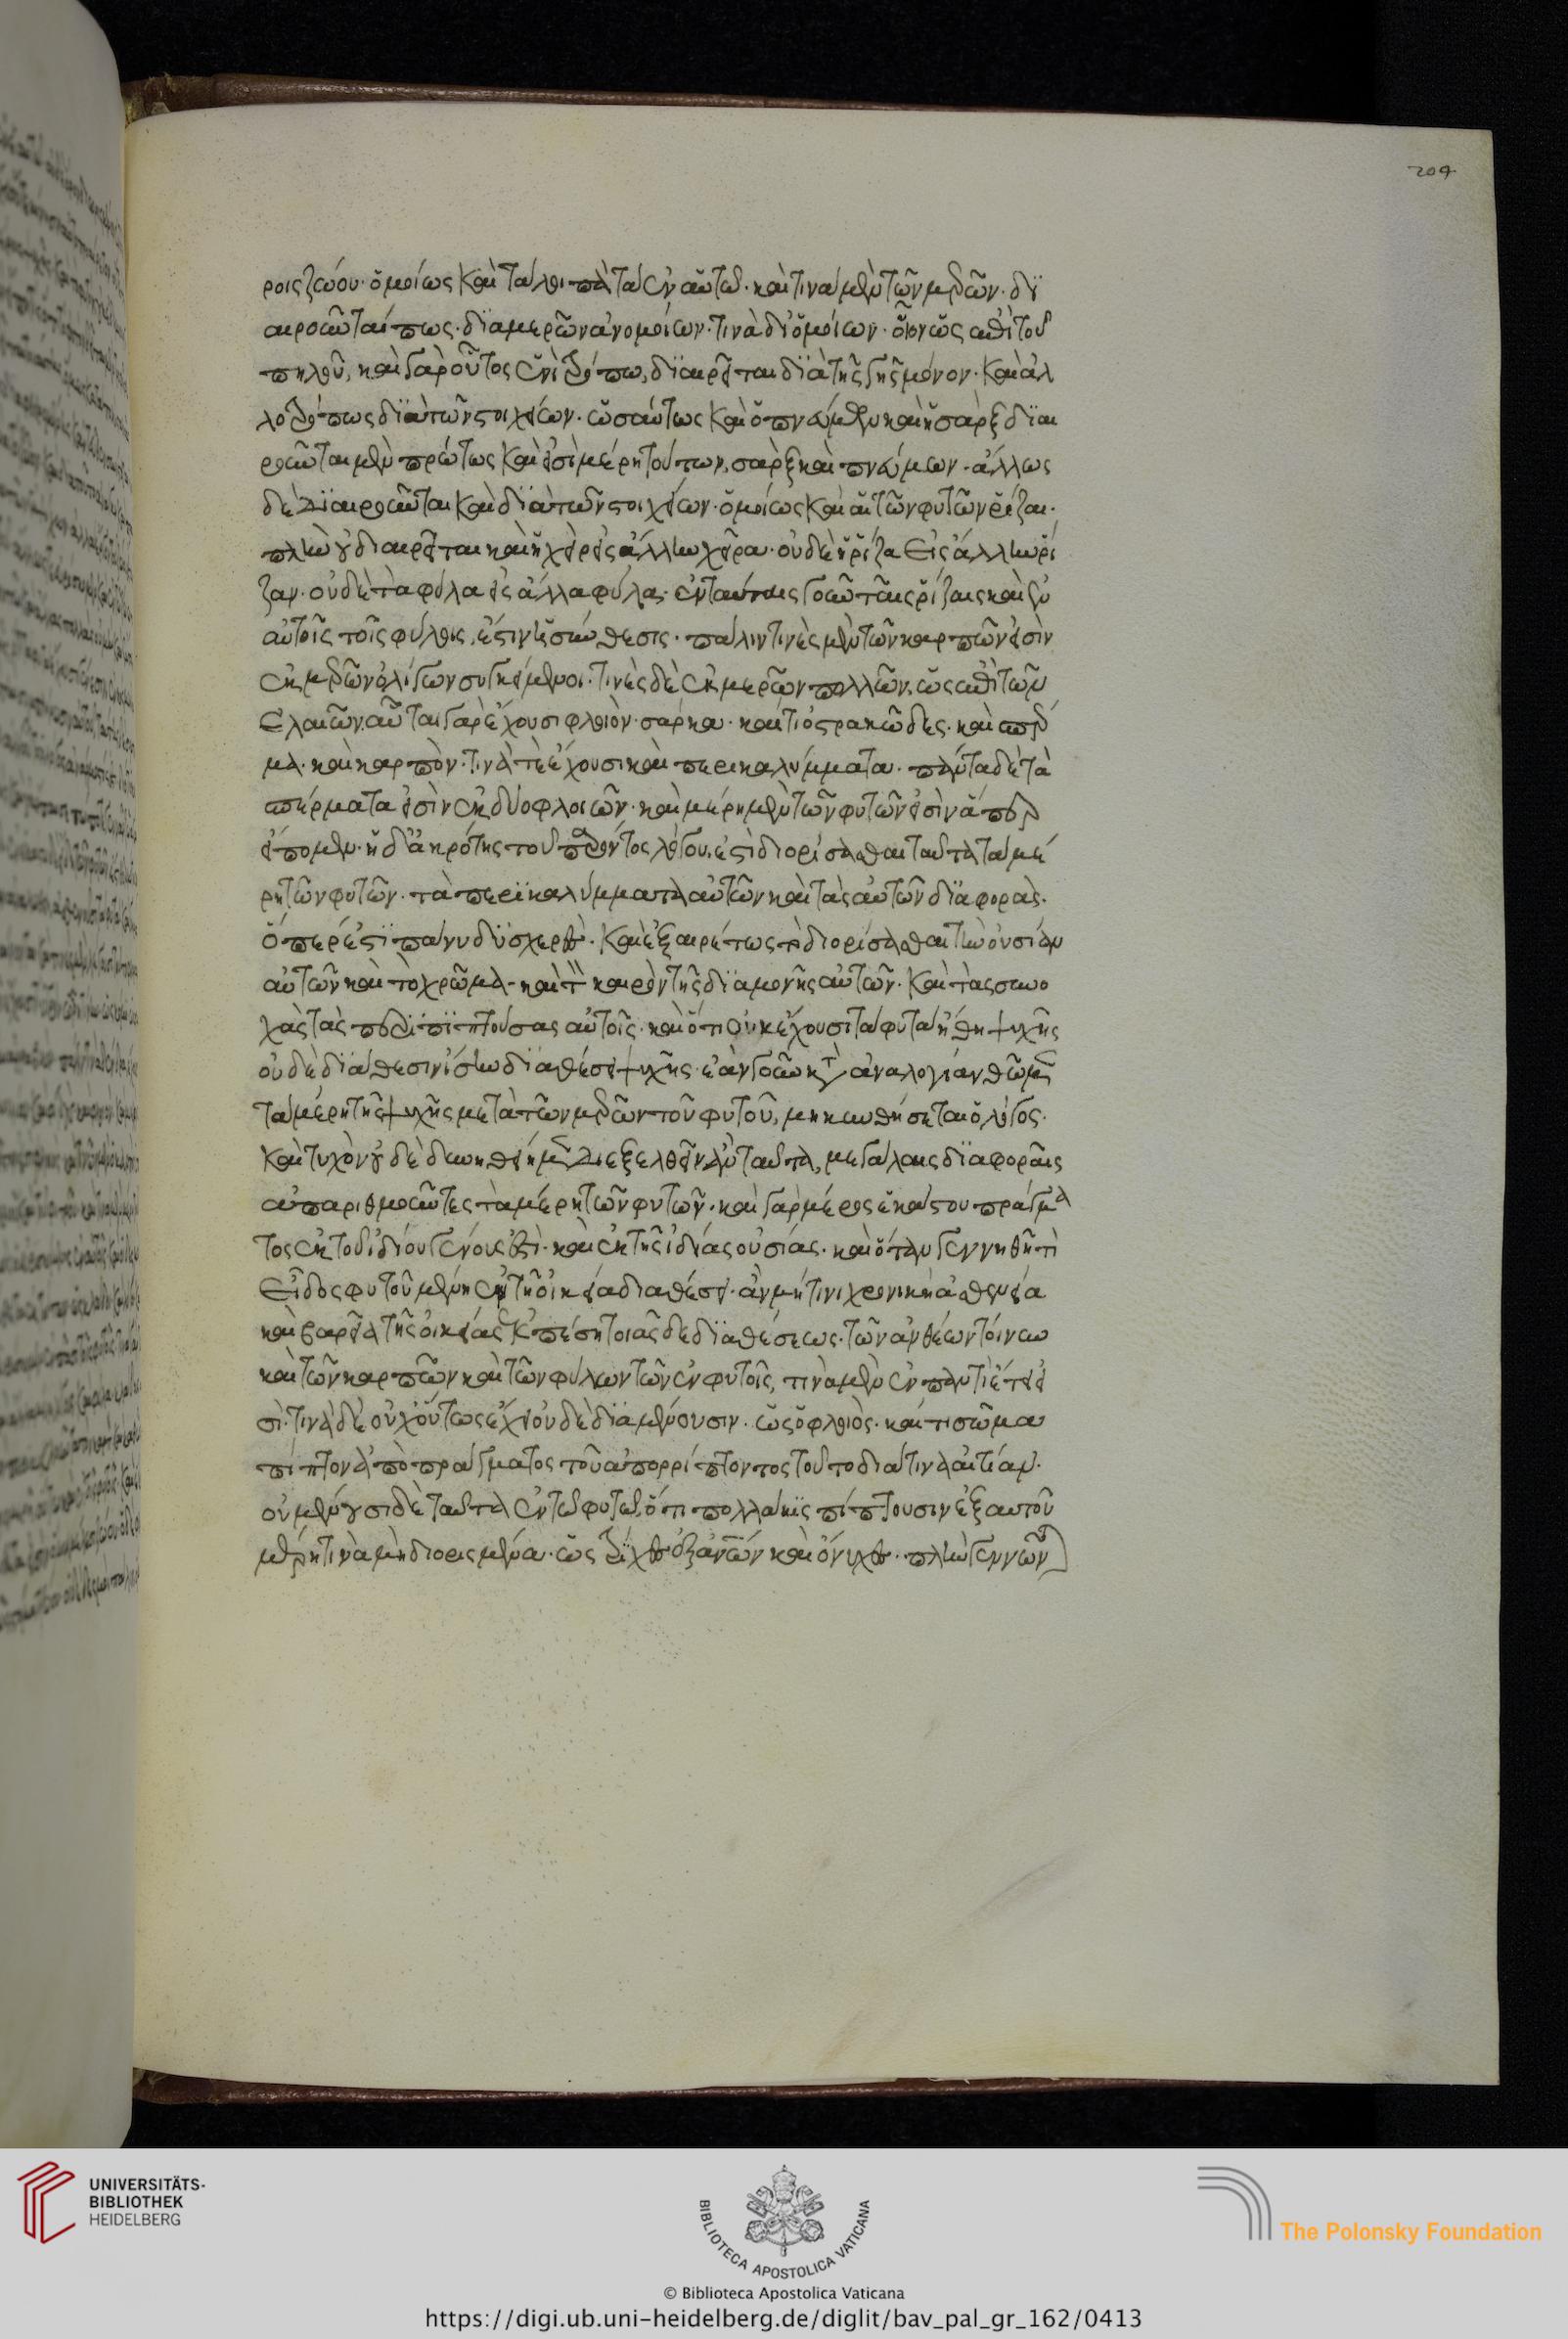 ροις ζώου· ὁμοίως καὶ τάλοι πάντα ἐν αὐτῶ· καὶ τινὰ μὲν τῶν μερῶν· δϊ
αιροῦνταί πως· διὰ μερῶν ἀνομοίων· τινὰ δι' ὁμοίων· οἷον ὡς ἐπὶ τοῦ
πηλοῦ, καὶ γὰρ οὗτος ἑνὶ τρόπω, διαιρεῖται διὰ τῆς γῆς μόνον· καὶ ἀλ
λοτρόπως διὰ τῶν στοιχείων· ὡσαύτως καὶ ὁ πνεύμων καὶ ἡ σὰρξ διαι
ροῦνται μὲν πρώτως καὶ εἰσὶ μέρη τούτων, σὰρξ καὶ πνεύμων· ἄλλως
δὲ διαιροῦνται καὶ διὰ τῶν στοιχείων· ὁμοίως καὶ αἱ τῶν φυτῶν ῥίζαι·
πλὴν οὐ διαιρεῖται καὶ ἡ χεὶρ εἰς ἄλλην χεῖρα· οὐδὲ ἡ ῥίζα εἰς ἄλλην ῥί
ζαν· οὐδὲ τὰ φύλα εἰς ἄλλα φύλα· ἐν ταύταις γοῦν ταῖς ῥίζαις καὶ ἐν
αὐτοῖς τοῖς φύλοις, ἐστὶν ἡ σύνθεσις· πάλιν τινὲς μὲν τῶν καρπῶν εἰσὶν
ἐκ μερῶν ὀλίγων συγκείμενοι· τινὲς δὲ ἐκ μερῶν πολλῶν, ὡς ἐπὶ τῶν
ἐλαιῶν, αὗται γὰρ ἔχουσι φλοιὸν· σάρκα· καί τι ὀστρακῶδες· καὶ σπέρ
μα· καὶ καρπὸν· τινὰ τὲ ἔχουσι καὶ περικαλύμματα· πάντα δὲ τὰ
σπέρματα εἰσὶν ἐκ δύο φλοιῶν· καὶ μέρη μὲν τῶν φυτῶν εἰσὶν ἅπερ
εἴπομεν· ἡ δ' ἀκρότης τοῦ παρόντος λόγου, ἐστὶ διορίσασθαι ταῦτα τὰ μέ
ρη τῶν φυτῶν· τὰ περικαλύμματα αὐτῶν καὶ τὰς αὐτῶν διαφοράς·
ὅπερ ἐστὶ πάνυ δυσχερὲς· καὶ ἐξαιρέτως τὸ διορίσασθαι τὴν οὐσίαν
αὐτῶν καὶ τὸ χρῶμα· καὶ τὸν καιρὸν τῆς διαμονῆς αὐτῶν· καὶ τὰς συνο
χὰς τὰς περιπιπτούσας αὐτοῖς· καὶ ὅτι οὐκ ἔχουσι τὰ φυτὰ ἤθη ψυχῆς
οὐδὲ διάθεσιν ἴσην διαθέσει ψυχῆς· ἐὰν γοῦν κατὰ ἀναλογίαν θῶμεν
τὰ μέρη τῆς ψυχῆς μετὰ τῶν μερῶν τοῦ φυτοῦ, μηκυνθήσεται ὁ λόγος·
καὶ τυχὸν οὐδὲ δυνηθείημεν διεξελθεῖν ἂν ταῦτα, μεγάλαις διαφοραῖς
ἀπαριθμοῦντες τὰ μέρη τῶν φυτῶν· καὶ γὰρ μέρος ἑκάστου πράγμα
τος ἐκ τοῦ ἰδίου γένους ἐστὶ· καὶ ἐκ τῆς ἰδίας οὐσίας· καὶ ὅταν γεννηθῆ τὶ
εἶδος φυτοῦ μένη ἐν τῆ οἰκεία διαθέσει· ἂν μή τινι χρονικῆ ἀσθενεία
καὶ βαρεία τῆς οἰκείας ἐκπέση τοιᾶς δὲ διαθέσεως· τῶν ἀνθέων τοίνυν
καὶ τῶν καρπῶν καὶ τῶν φύλων τῶν ἐν φυτοῖς, τινὰ μὲν ἐν παντὶ ἔτει εἰ
σὶ· τινὰ δὲ οὐχ οὕτως ἔχει οὐδὲ διαμένουσιν· ὡς ὁ φλοιὸς· καί τι σῶμα
πίπτον ἀπὸ πράγματος τοῦ ἀπορρίπτοντος τοῦτο διά τινα αἰτίαν·
οὐ μένουσι δὲ ταῦτα ἐν τῶ φυτῶ, ὅτι πολλάκις πίπτουσιν ἐξ αὐτοῦ
μέρη τινὰ μὴ διορισμένα· ὡς τρίχες ἐξ ἀνων καὶ ὄνυχες· πλὴν γεννῶν
204
UNIVERSITÄTS-
BIBLIOTHEK
HEIDELBERG
BIBLIOTECA APOSTOLICA VATICANA
The Polonsky Foundation
© Biblioteca Apostolica Vaticana
https://digi.ub.uni-heidelberg.de/diglit/bav_pal_gr_162/0413